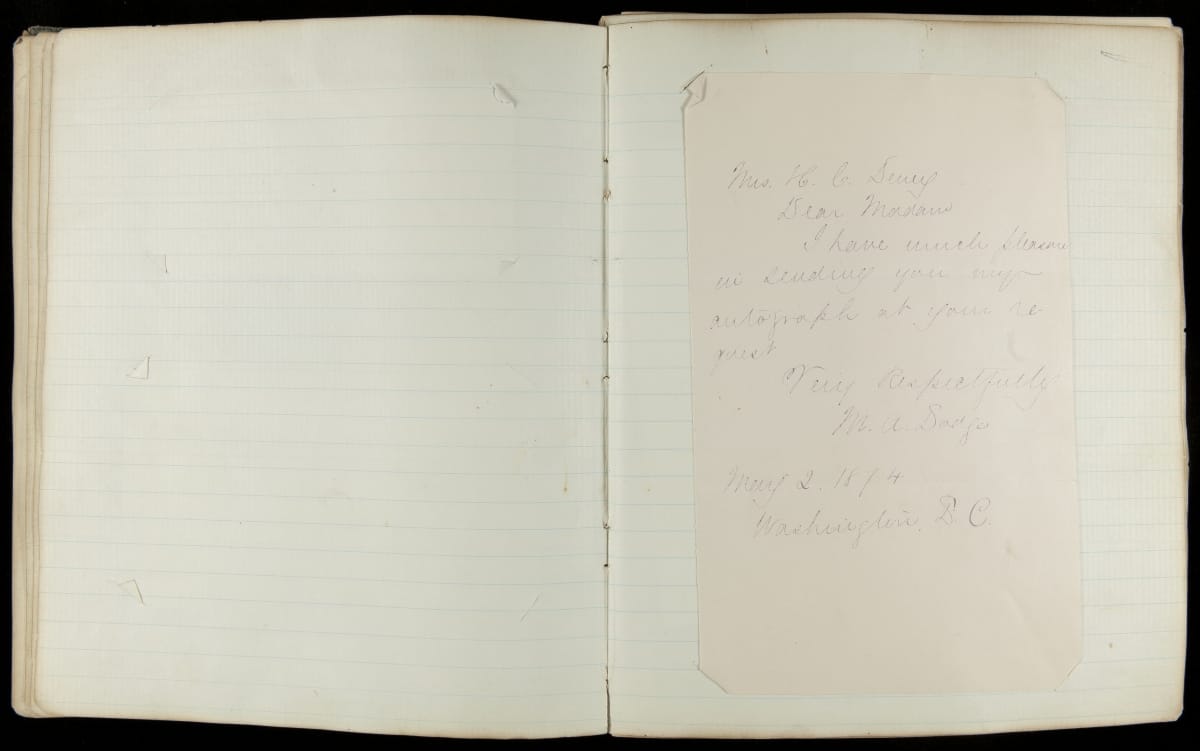 Mrs. H. C. Denny
Dear Madam
I have much pleasure
in sending you my
autograph at your re
quest
Very Respectfully
M. A. Dodge
May 2. 1874
Washington, D. C.